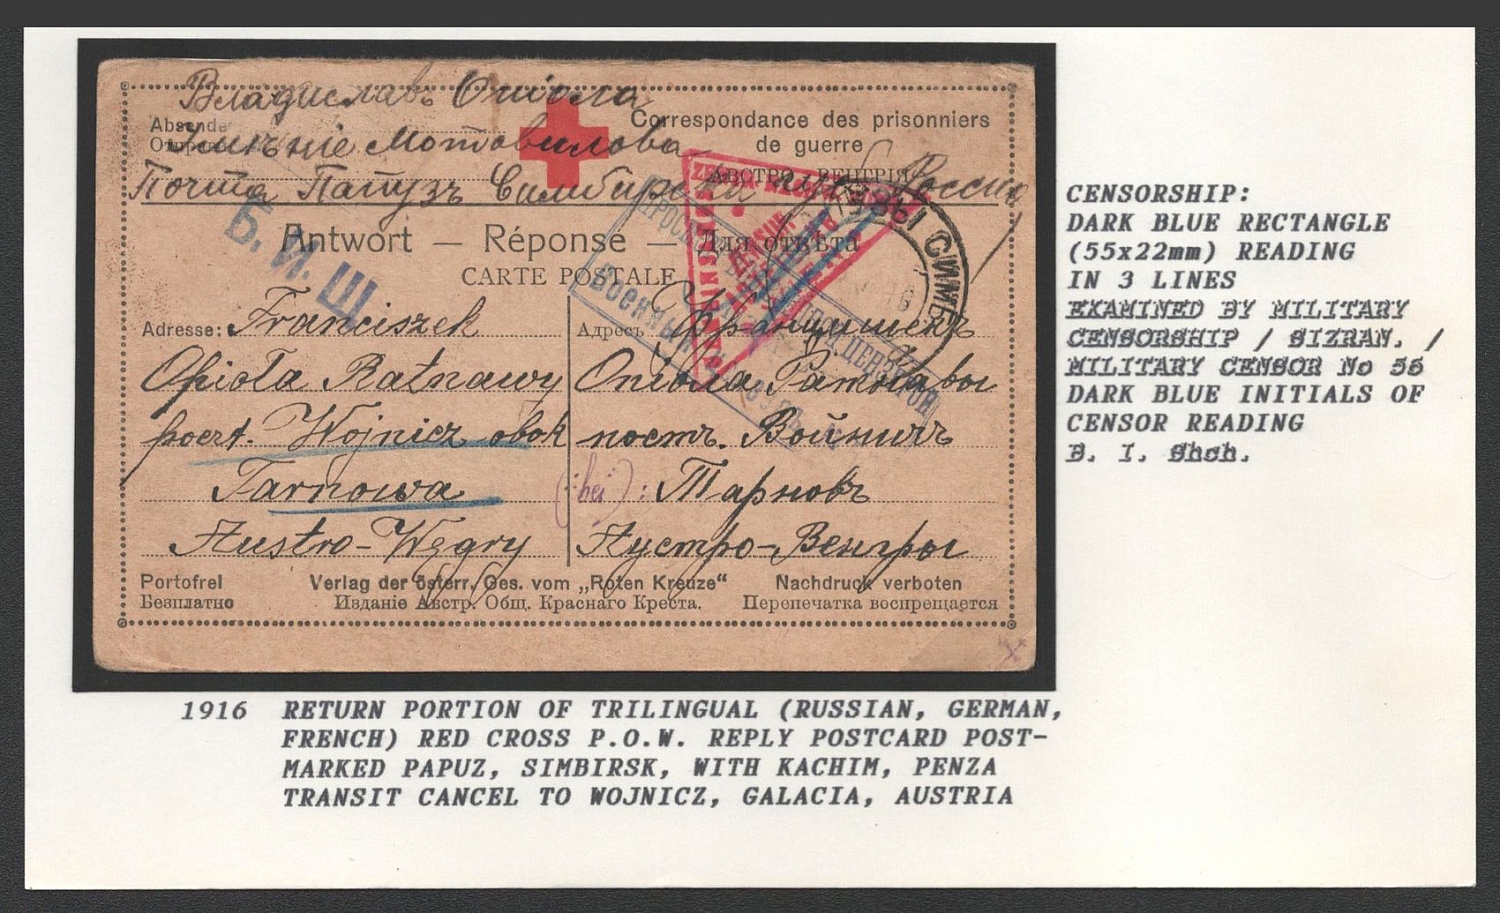 Владиславъ Опіола
Absende
Имѣніе Мотовилова
Correspondance des prisonniers
de guerre
Почта Папузъ Симбирск губ Россия
АВСТРО-ВЕНГРІЯ
Б. И. Щ.
Antwort — Réponse — Для отвѣта
CARTE POSTALE
ПАПУЗЫ СИМБ
Военный
Adresse: Franciszek
Opioła Ratnawy
poczt. Wojnicz obok
Tarnowa
Austro-Węgry
Адресъ Францишекъ
Опіола Ратнавы
почт. Войничъ
(bei): Тарновъ
Аустро-Венгры
Portofrei Verlag der österr. Ges. vom „Roten Kreuze“ Nachdruck verboten
Безплатно Изданіе Австр. Общ. Краснаго Креста. Перепечатка воспрещается
CENSORSHIP:
DARK BLUE RECTANGLE
(55x22mm) READING
IN 3 LINES
EXAMINED BY MILITARY
CENSORSHIP / SIZRAN. /
MILITARY CENSOR No 56
DARK BLUE INITIALS OF
CENSOR READING
B. I. Shch.
1916 RETURN PORTION OF TRILINGUAL (RUSSIAN, GERMAN,
FRENCH) RED CROSS P.O.W. REPLY POSTCARD POST-
MARKED PAPUZ, SIMBIRSK, WITH KACHIM, PENZA
TRANSIT CANCEL TO WOJNICZ, GALACIA, AUSTRIA